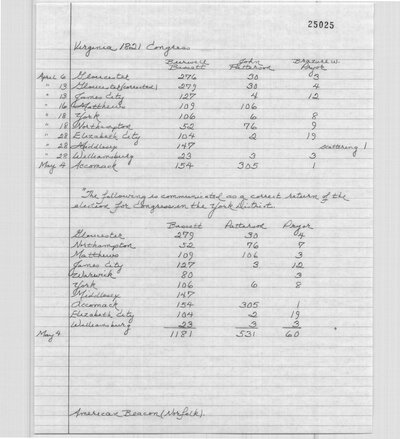 25025
Virginia 1821 Congress
Burwell Bassett John Patterson Brazure W. Pryor
April 6 Gloucester 276 30 3
" 13 Gloucester (corrected) 279 30 4
" 13 James City 127 4 12
" 16 Matthews 109 106
" 18 York 106 6 8
" 18 Northampton 52 76 9
" 28 Elizabeth City 104 2 19
" 28 Middlesex 147 scattering 1
" 28 Williamsburg 23 3 3
May 4 Accomack 154 305 1
"The following is communicated as a correct return of the
election for Congress in the York District.
Bassett Patterson Pryor
Gloucester 279 30 4
Northampton 52 76 7
Matthews 109 106 3
James City 127 3 12
Warwick 80 3
York 106 6 8
Middlesex 147
Accomack 154 305 1
Elizabeth City 104 2 19
Williamsburg 23 3 3
May 4 1181 531 60
American Beacon (Norfolk).